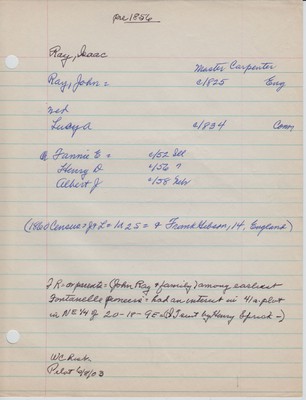 pre 1856
Ray, Isaac
Master Carpenter
Ray, John = c/825 Eng
wed
Lucy A c/834 Conn
Fannie E = c/52 Ill
Henry D c/56 ?
Albert J c/58 Nebr
(1860 Census = J + L = 1125 = & Frank Gibson, 14, England)
= (John Ray & family) among earliest
Fontanelle pioneers = had an interest in 41 a. plot
in NE 1/4 of 20-18-9E = sent by Henry Sprick =)
Pilot